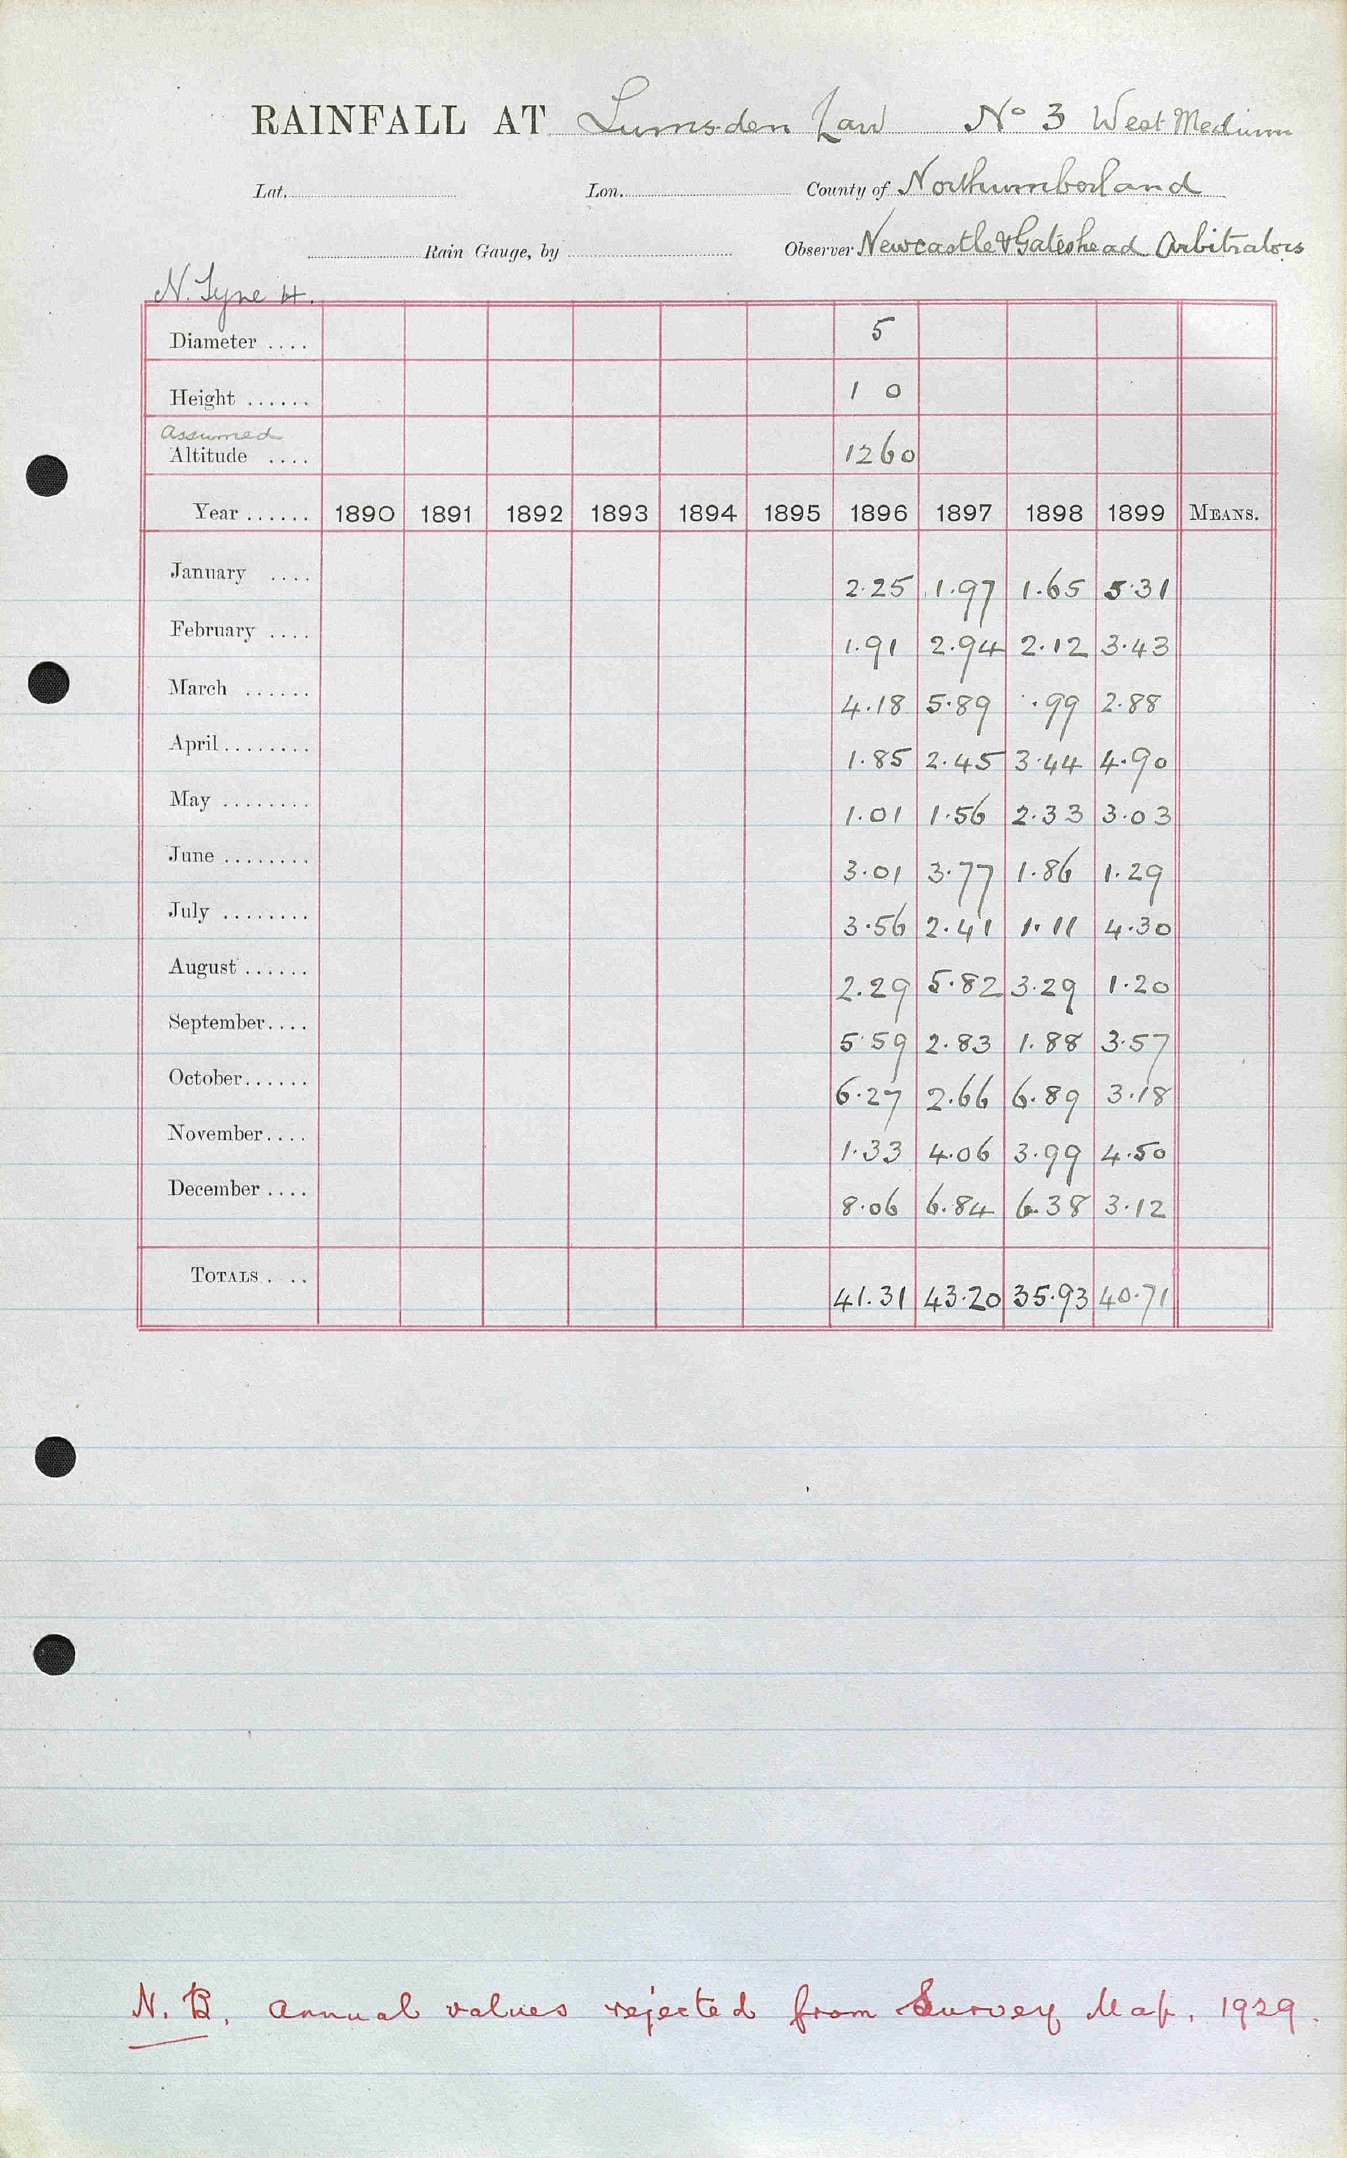 RAINFALL AT Lumsden Law No 3 West Medium
Lat. Lon. County of Northumberland
Rain Gauge, by Observer Newcastle & Gateshead Arbitrators
N. Tyne 4.
Diameter .... 5
Height ...... 1 0
assumed
Altitude .... 1260
Year ...... 1890 1891 1892 1893 1894 1895 1896 1897 1898 1899 MEANS.
January .... 2.25 1.97 1.65 5.31
February .... 1.91 2.94 2.12 3.43
March ...... 4.18 5.89 .99 2.88
April ........ 1.85 2.45 3.44 4.90
May ........ 1.01 1.56 2.33 3.03
June ........ 3.01 3.77 1.86 1.29
July ........ 3.56 2.41 1.11 4.30
August ...... 2.29 5.82 3.29 1.20
September.... 5.59 2.83 1.88 3.57
October...... 6.27 2.66 6.89 3.18
November.... 1.33 4.06 3.99 4.50
December .... 8.06 6.84 6.38 3.12
TOTALS . .. 41.31 43.20 35.93 40.71
N. B. Annual values rejected from Survey Map. 1929.